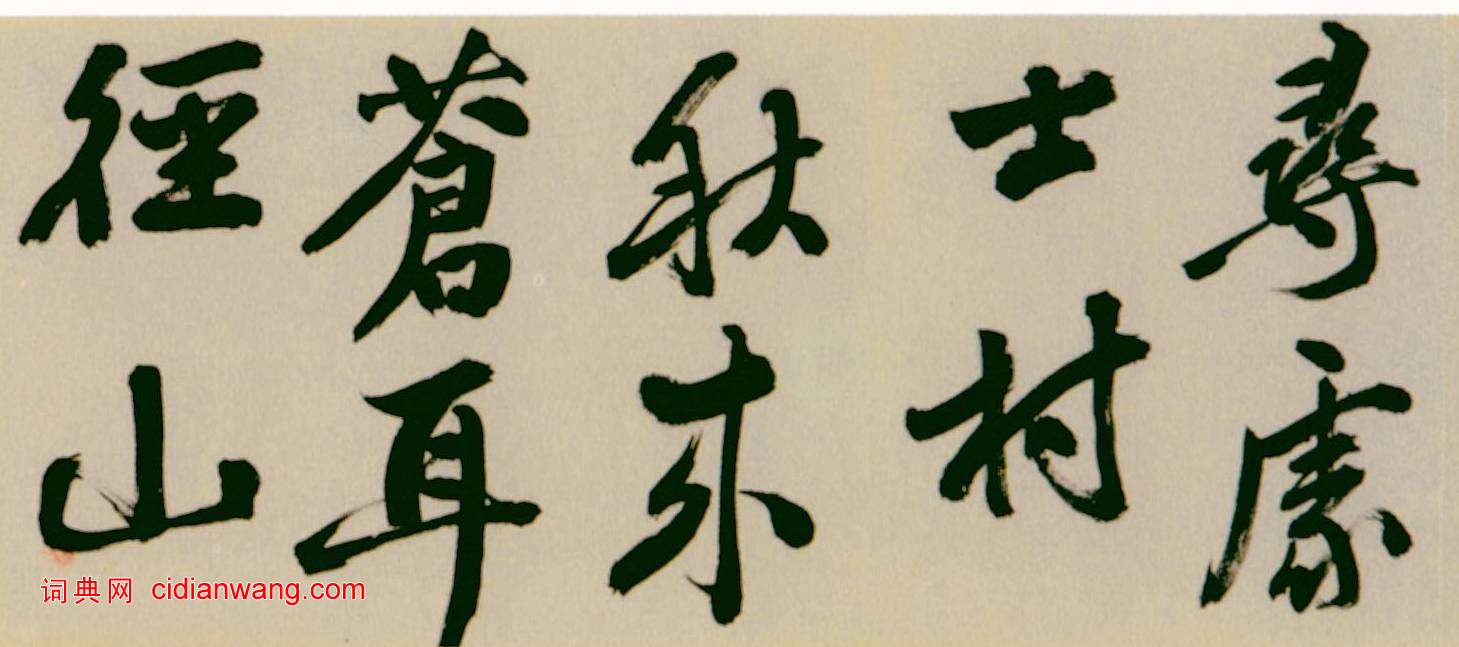 尋處
士村
秋來
蒼耳
徑山
词典网 cidianwang.com